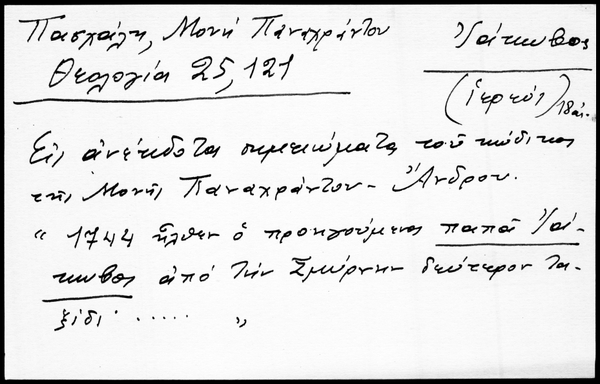 Πασχάλη, Μονή Παναχράντου
Θεολογία 25, 121
Ἰάκωβος
(ἱερεύς) 18 αἰ.
Εἰς ἀνέκδοτα σημειώματα τοῦ κώδικος
τῆς Μονῆς Παναχράντου - Ἄνδρου.
" 1744 ἦλθεν ὁ προηγούμενος παπᾶ Ἰά-
κωβος ἀπό τήν Σμύρνην δεύτερον τα-
ξίδι ..... "